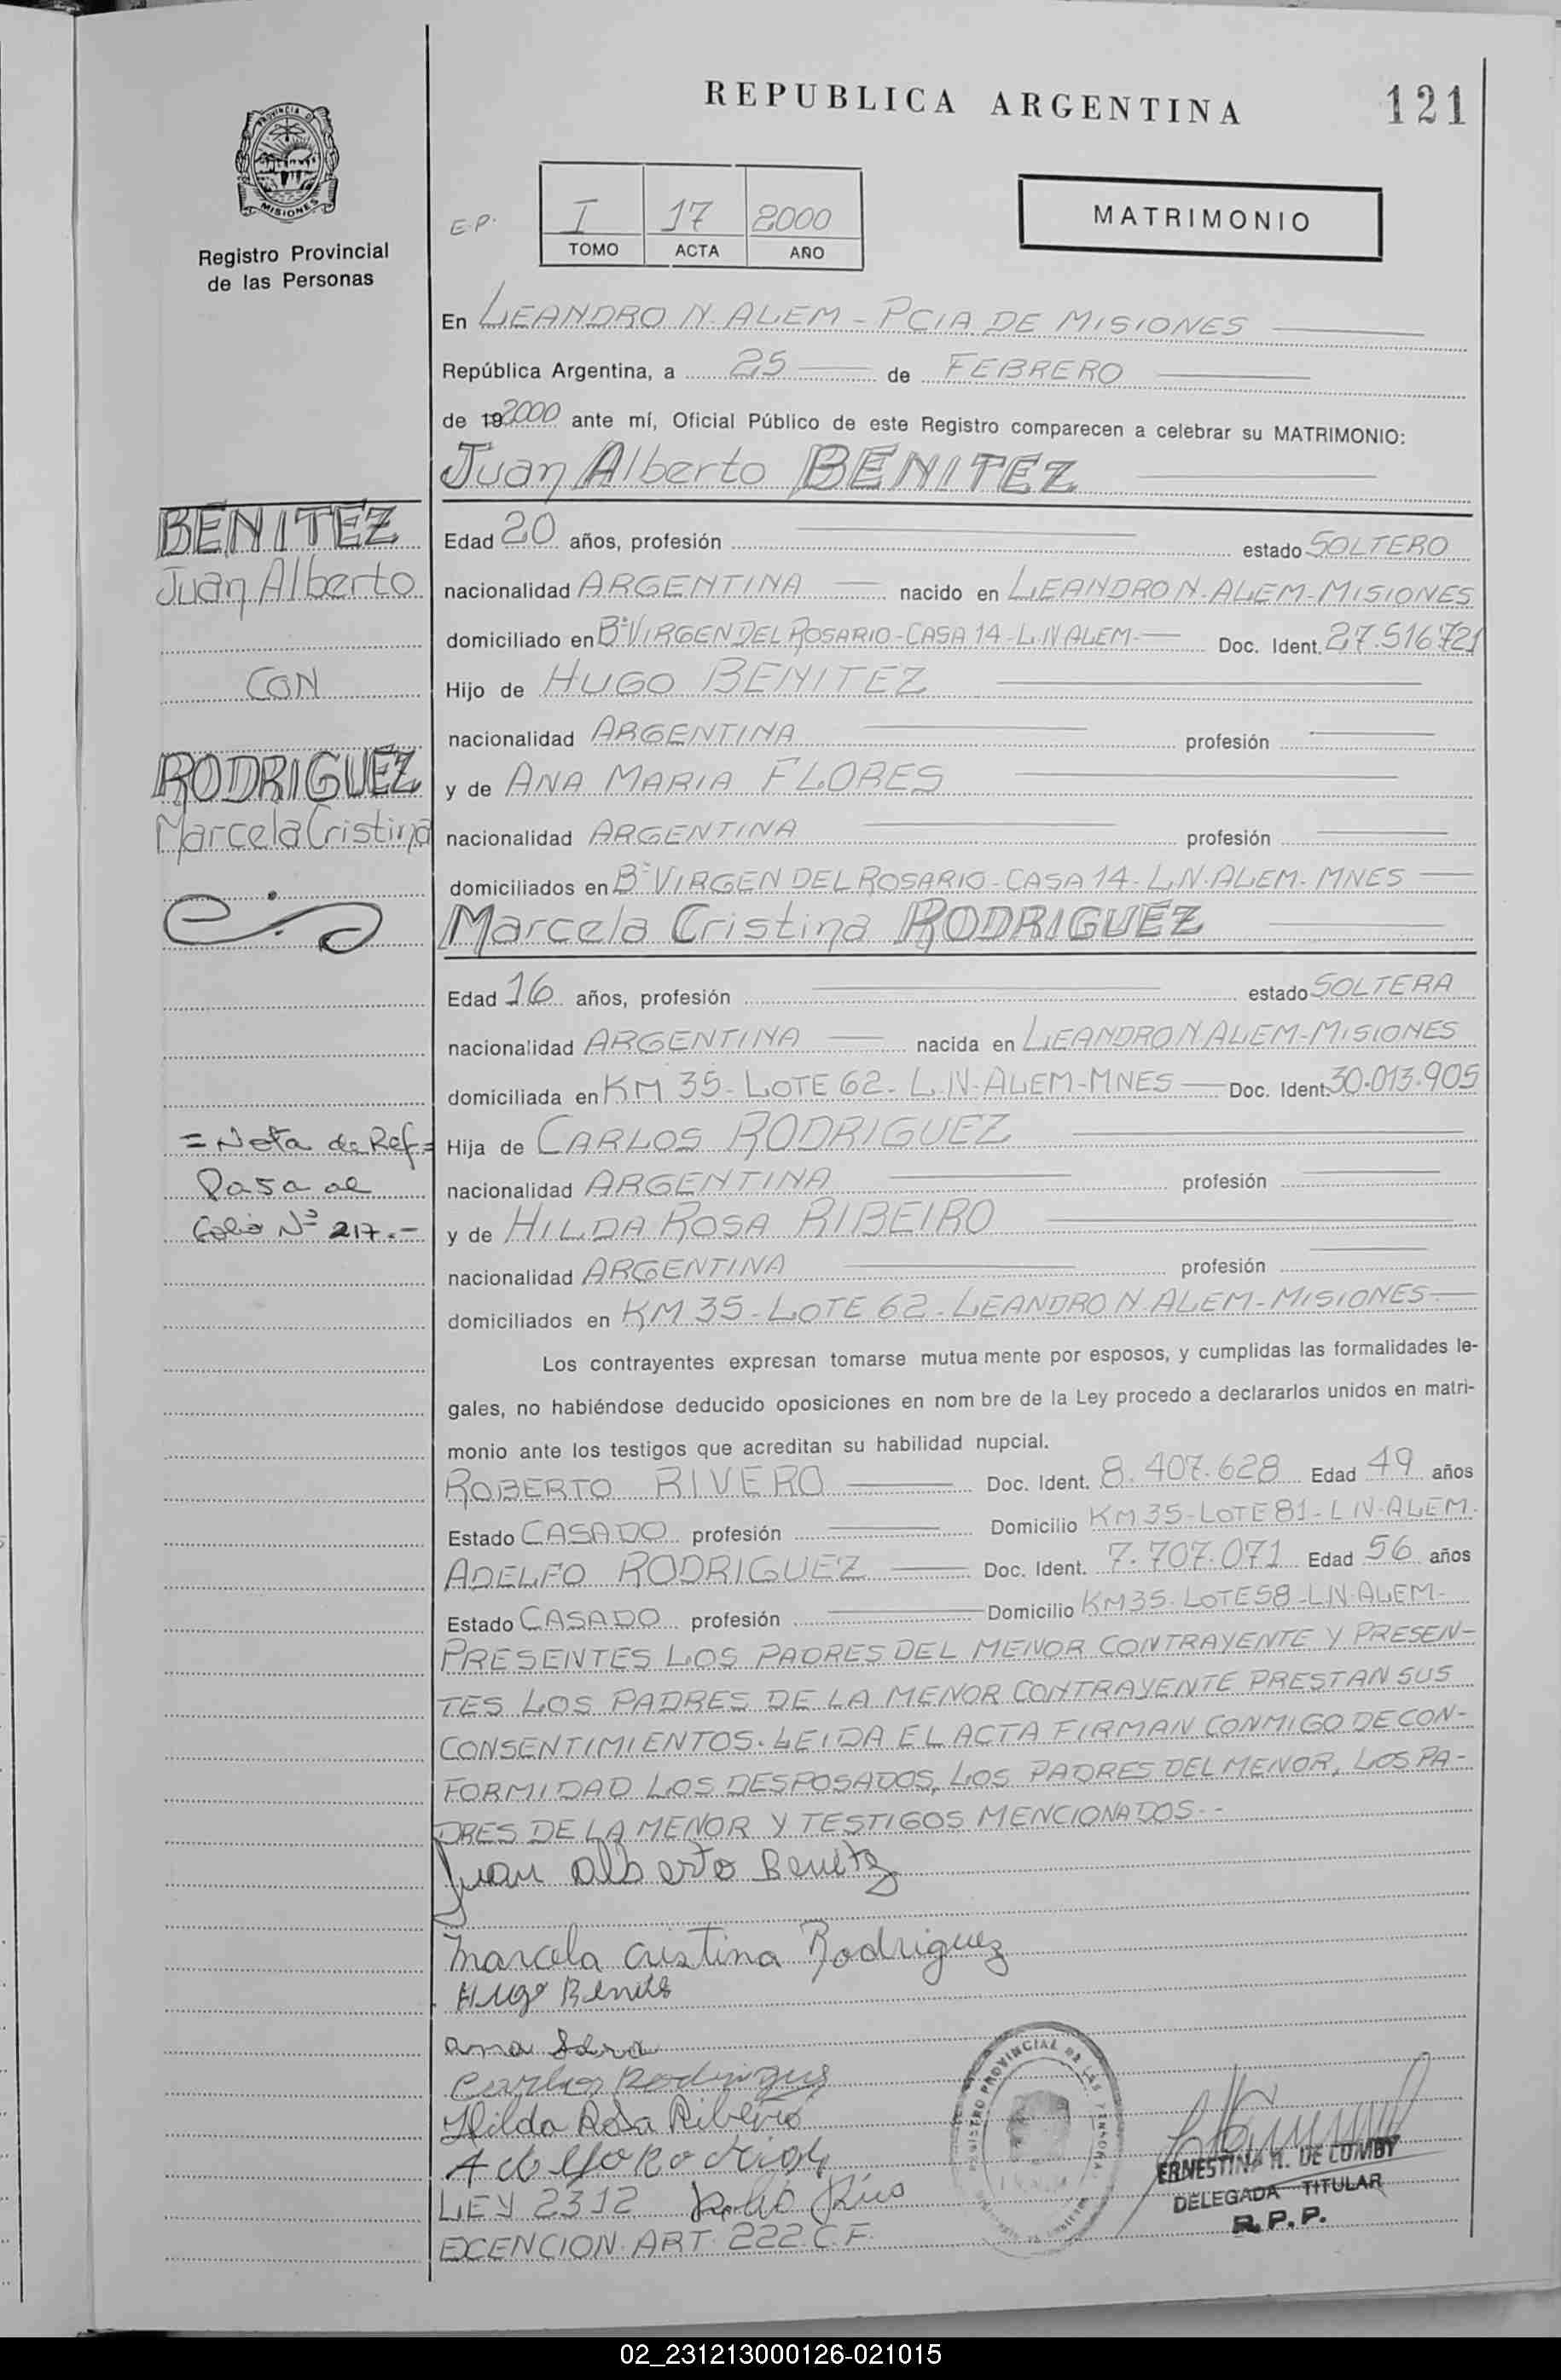 REPUBLICA ARGENTINA
121
PROVINCIA DE
MISIONES
Registro Provincial
de las Personas
E.P.
I 17 2000
TOMO ACTA AÑO
MATRIMONIO
En LEANDRO N. ALEM - PCIA DE MISIONES
República Argentina, a 25 de FEBRERO
de 192000 ante mí, Oficial Público de este Registro comparecen a celebrar su MATRIMONIO:
Juan Alberto BENITEZ
BENITEZ
Juan Alberto
CON
RODRIGUEZ
Marcela Cristina
Edad 20 años, profesión estado SOLTERO
nacionalidad ARGENTINA nacido en LEANDRO N. ALEM-MISIONES
domiciliado en B° VIRGEN DEL ROSARIO-CASA 14-L.N ALEM- Doc. Ident. 27.516.721
Hijo de HUGO BENITEZ
nacionalidad ARGENTINA profesión
y de ANA MARIA FLORES
nacionalidad ARGENTINA profesión
domiciliados en B° VIRGEN DEL ROSARIO-CASA 14-L.N.ALEM-MNES
Marcela Cristina RODRIGUEZ
Edad 16 años, profesión estado SOLTERA
nacionalidad ARGENTINA nacida en LEANDRO N ALEM-MISIONES
domiciliada en KM 35-LOTE 62-L.N-ALEM-MNES Doc. Ident. 30.013.905
= Nota de Ref =
Pasa al
Folio N° 217.-
Hija de CARLOS RODRIGUEZ
nacionalidad ARGENTINA profesión
y de HILDA ROSA RIBEIRO
nacionalidad ARGENTINA profesión
domiciliados en KM 35-LOTE 62-LEANDRO N ALEM-MISIONES-
Los contrayentes expresan tomarse mutua mente por esposos, y cumplidas las formalidades le-
gales, no habiéndose deducido oposiciones en nom bre de la Ley procedo a declararlos unidos en matri-
monio ante los testigos que acreditan su habilidad nupcial.
ROBERTO RIVERO Doc. Ident. 8.407.628 Edad 49 años
Estado CASADO profesión Domicilio KM 35-LOTE 81-L N-ALEM.
ADELFO RODRIGUEZ Doc. Ident. 7.707.071 Edad 56 años
Estado CASADO profesión Domicilio KM35-LOTE58-LN-ALEM-
PRESENTES LOS PADRES DEL MENOR CONTRAYENTE Y PRESEN-
TES LOS PADRES DE LA MENOR CONTRAYENTE PRESTAN SUS
CONSENTIMIENTOS. LEIDA EL ACTA FIRMAN CONMIGO DE CON-
FORMIDAD LOS DESPOSADOS, LOS PADRES DEL MENOR, LOS PA-
DRES DE LA MENOR Y TESTIGOS MENCIONADOS.-
Juan Alberto Benitez
Marcela Cristina Rodriguez
Hugo Benites
ana
Carlos Rodriguez
Hilda Rosa Ribeiro
LEY 2312
EXENCION ART. 222 C.F.
REGISTRO PROVINCIAL DE LAS PERSONAS
ERNESTINA R. DE LUMBY
DELEGADA TITULAR
R.P.P.
02_231213000126-021015